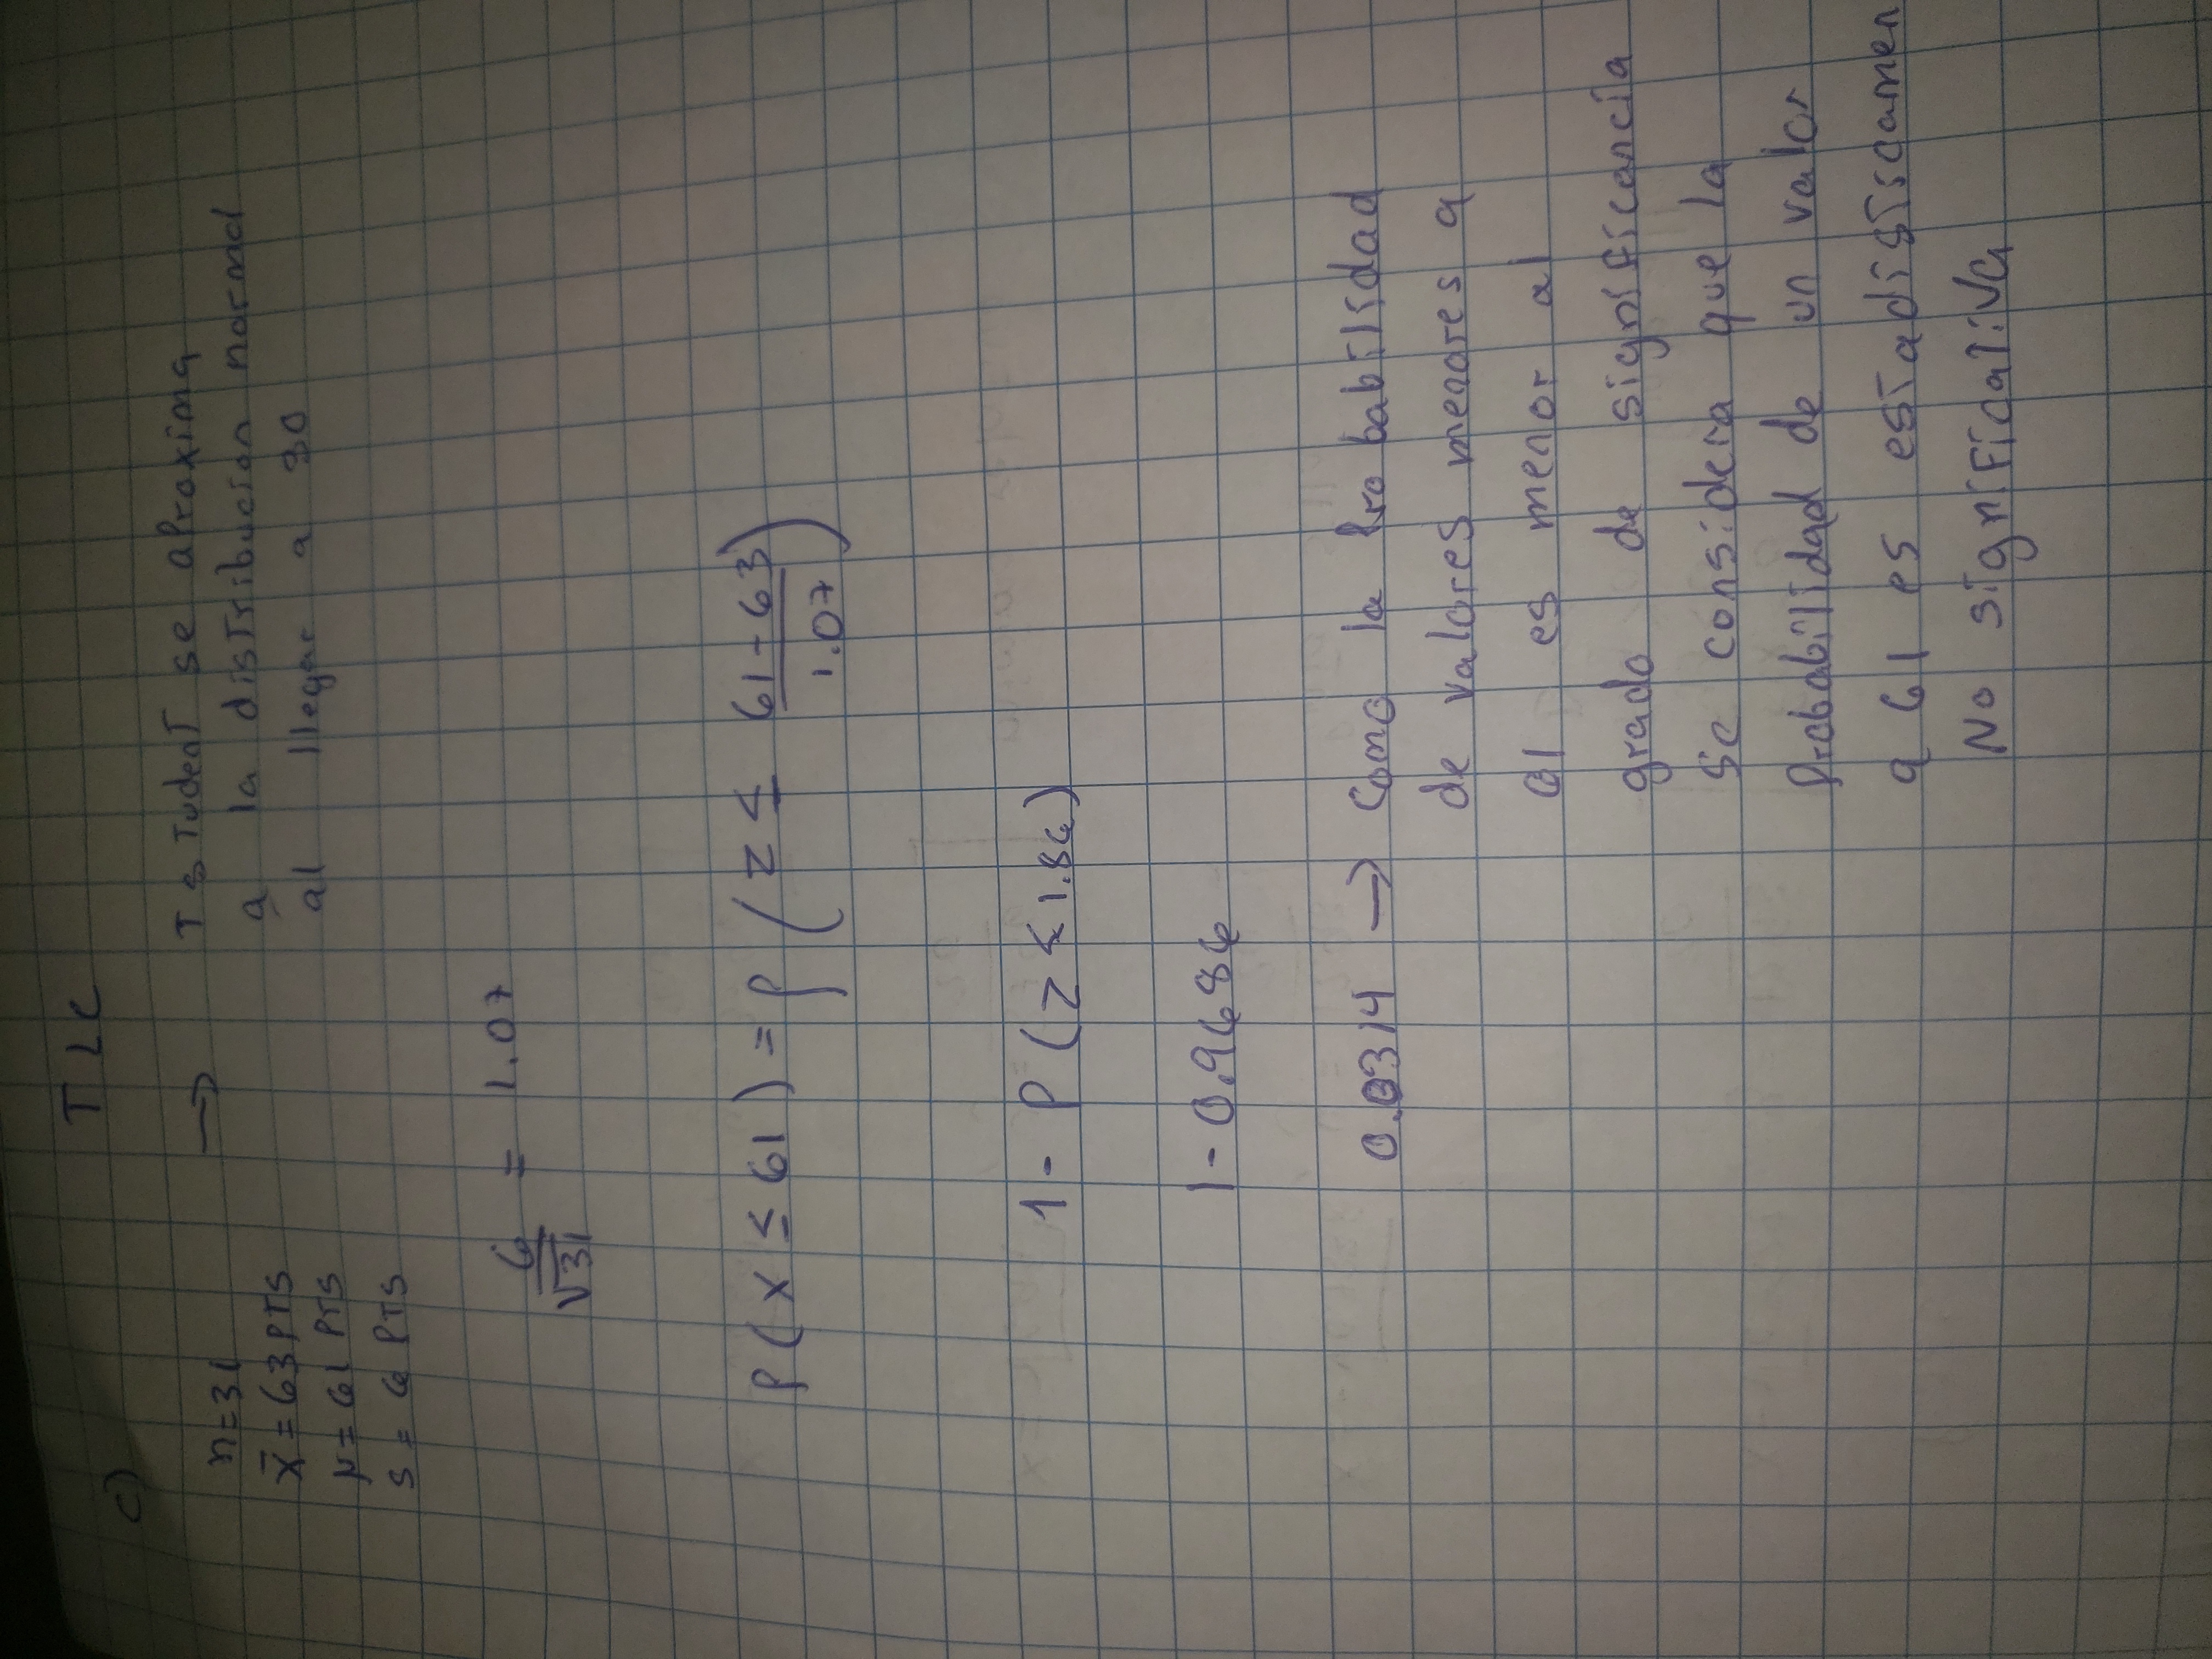 TLC
c)
n=31 → T student se aproxima
x̄=63 PTS a la distribución normal
μ=61 PTS al llegar a 30
s=6 PTS
6/√31 = 1.07
P(X ≤ 61) = P(Z ≤ (61-63)/1.07)
1 - P(Z ≤ 1.86)
1 - 0.9686
0.0314 → Como la Probabilidad
de valores menores a
61 es menor al
grado de significancia
se considera que la
Probabilidad de un valor
a 61 es estadisiscamen
No significativa